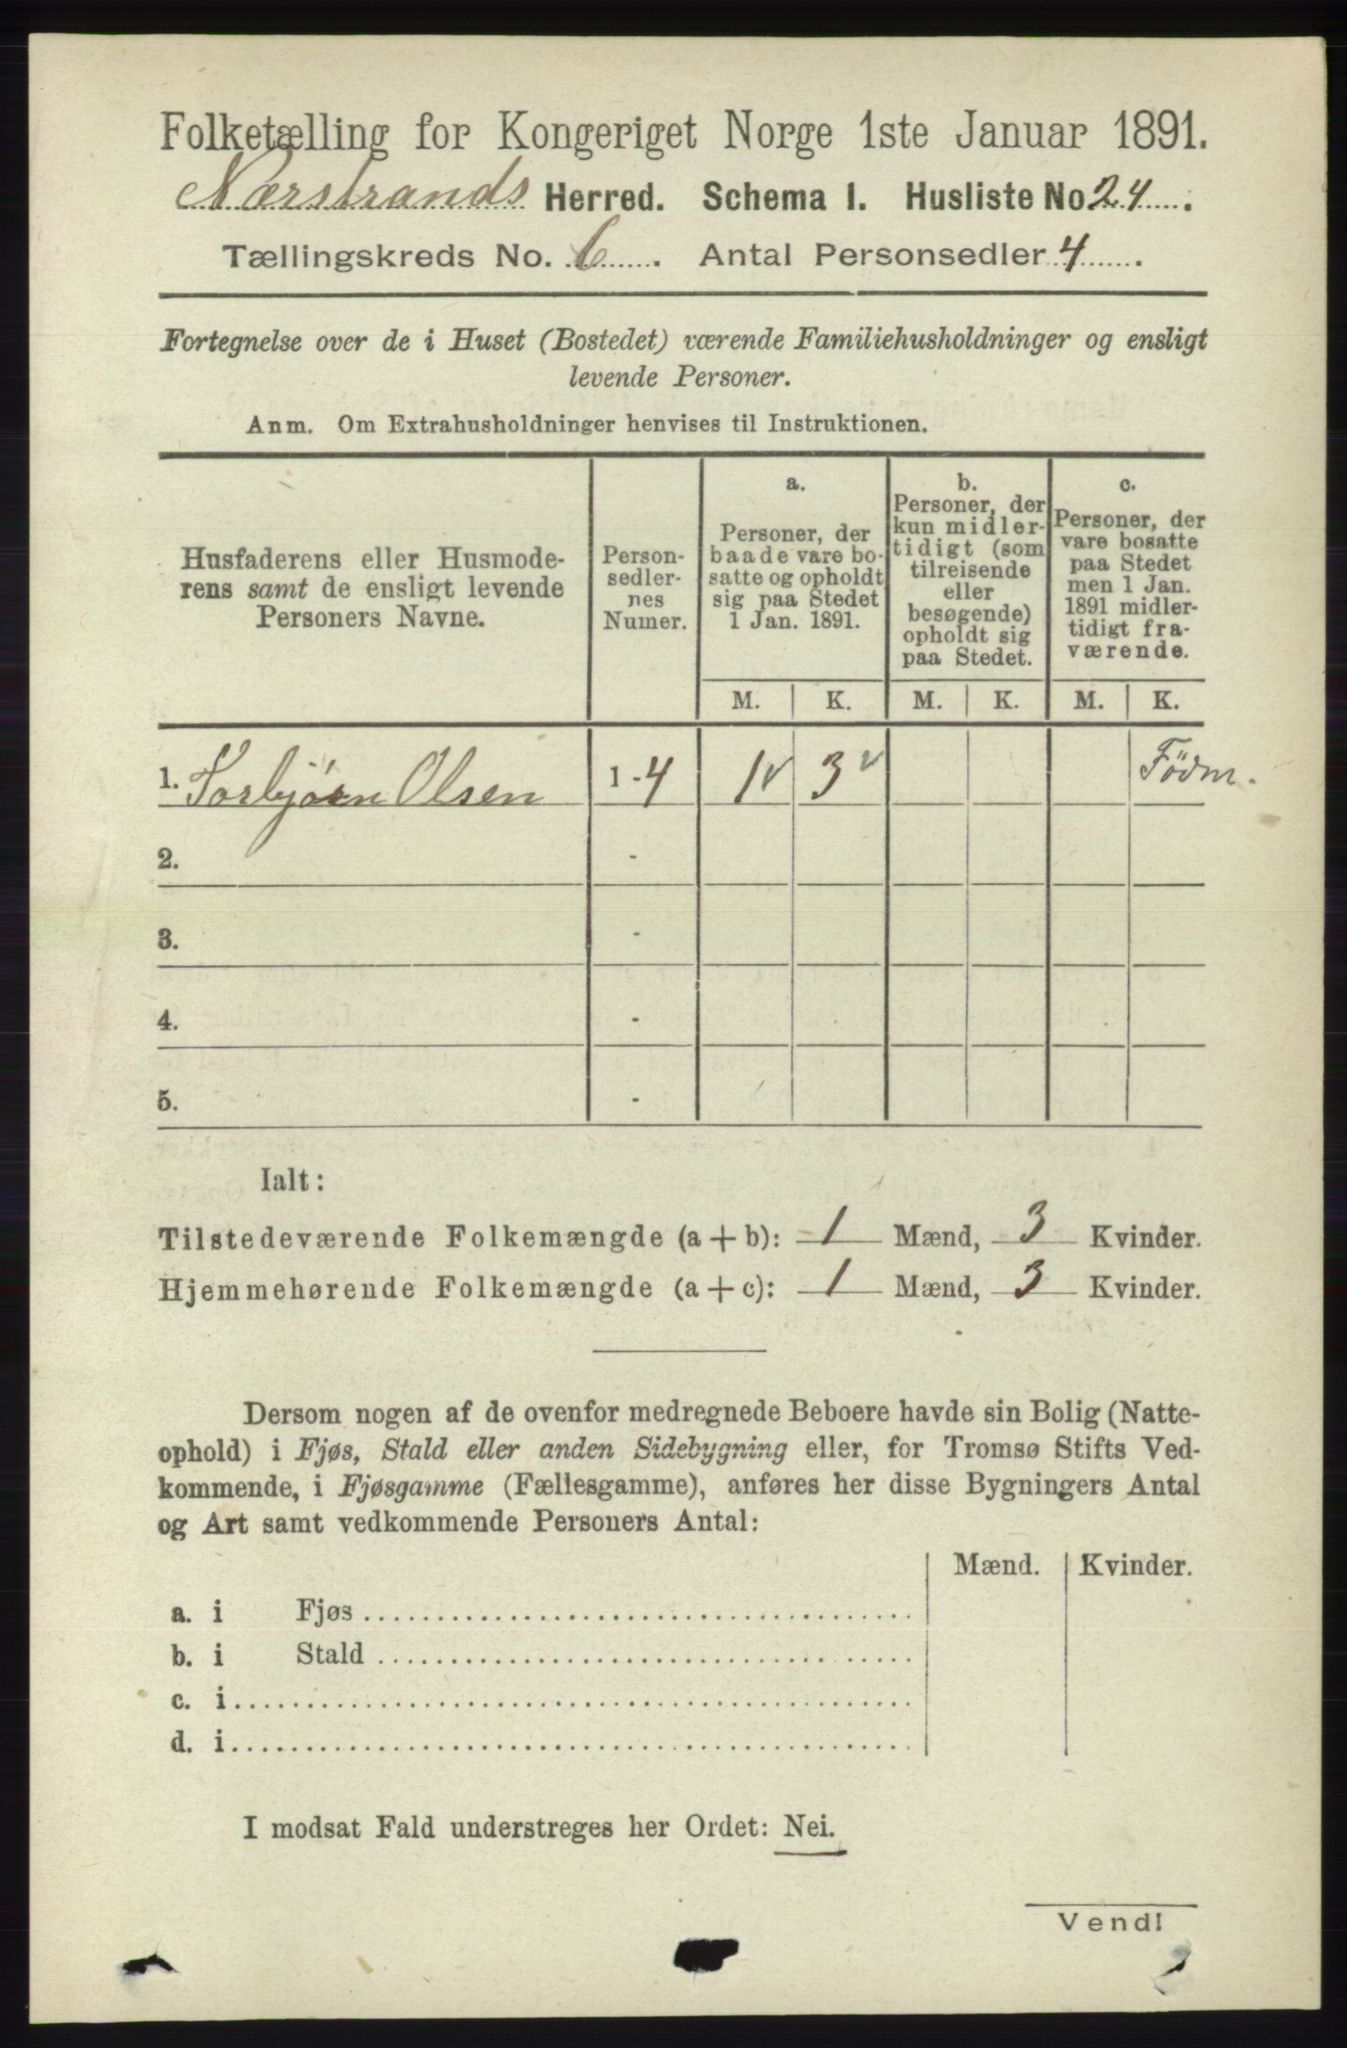 Folketælling for Kongeriget Norge 1ste Januar 1891.
Nærstrands Herred. Schema I. Husliste No 24.
Tællingskreds No. 6. Antal Personsedler 4.
Fortegnelse over de i Huset (Bostedet) værende Familiehusholdninger og ensligt
levende Personer.
Anm. Om Extrahusholdninger henvises til Instruktionen.
Husfaderens eller Husmode-
rens samt de ensligt levende
Personers Navne.
Person-
sedler-
nes
Numer.
a.
Personer, der
baade vare bo-
satte og opholdt
sig paa Stedet
1 Jan. 1891.
b.
Personer, der
kun midler-
tidigt (som
tilreisende
eller
besøgende)
opholdt sig
paa Stedet.
c.
Personer, der
vare bosatte
paa Stedet
men 1 Jan.
1891 midler-
tidigt fra-
værende.
M. K. M. K. M. K.
1. Torbjørn Olsen 1 - 4 1 3 Födm.
2. -
3. -
4. -
5. -
Ialt:
Tilstedeværende Folkemængde (a + b): 1 Mænd, 3 Kvinder.
Hjemmehørende Folkemængde (a + c): 1 Mænd, 3 Kvinder.
Dersom nogen af de ovenfor medregnede Beboere havde sin Bolig (Natte-
ophold) i Fjøs, Stald eller anden Sidebygning eller, for Tromsø Stifts Ved-
kommende, i Fjøsgamme (Fællesgamme), anføres her disse Bygningers Antal
og Art samt vedkommende Personers Antal:
Mænd. Kvinder.
a. i Fjøs
b. i Stald
c. i
d. i
I modsat Fald understreges her Ordet: Nei.
Vend!